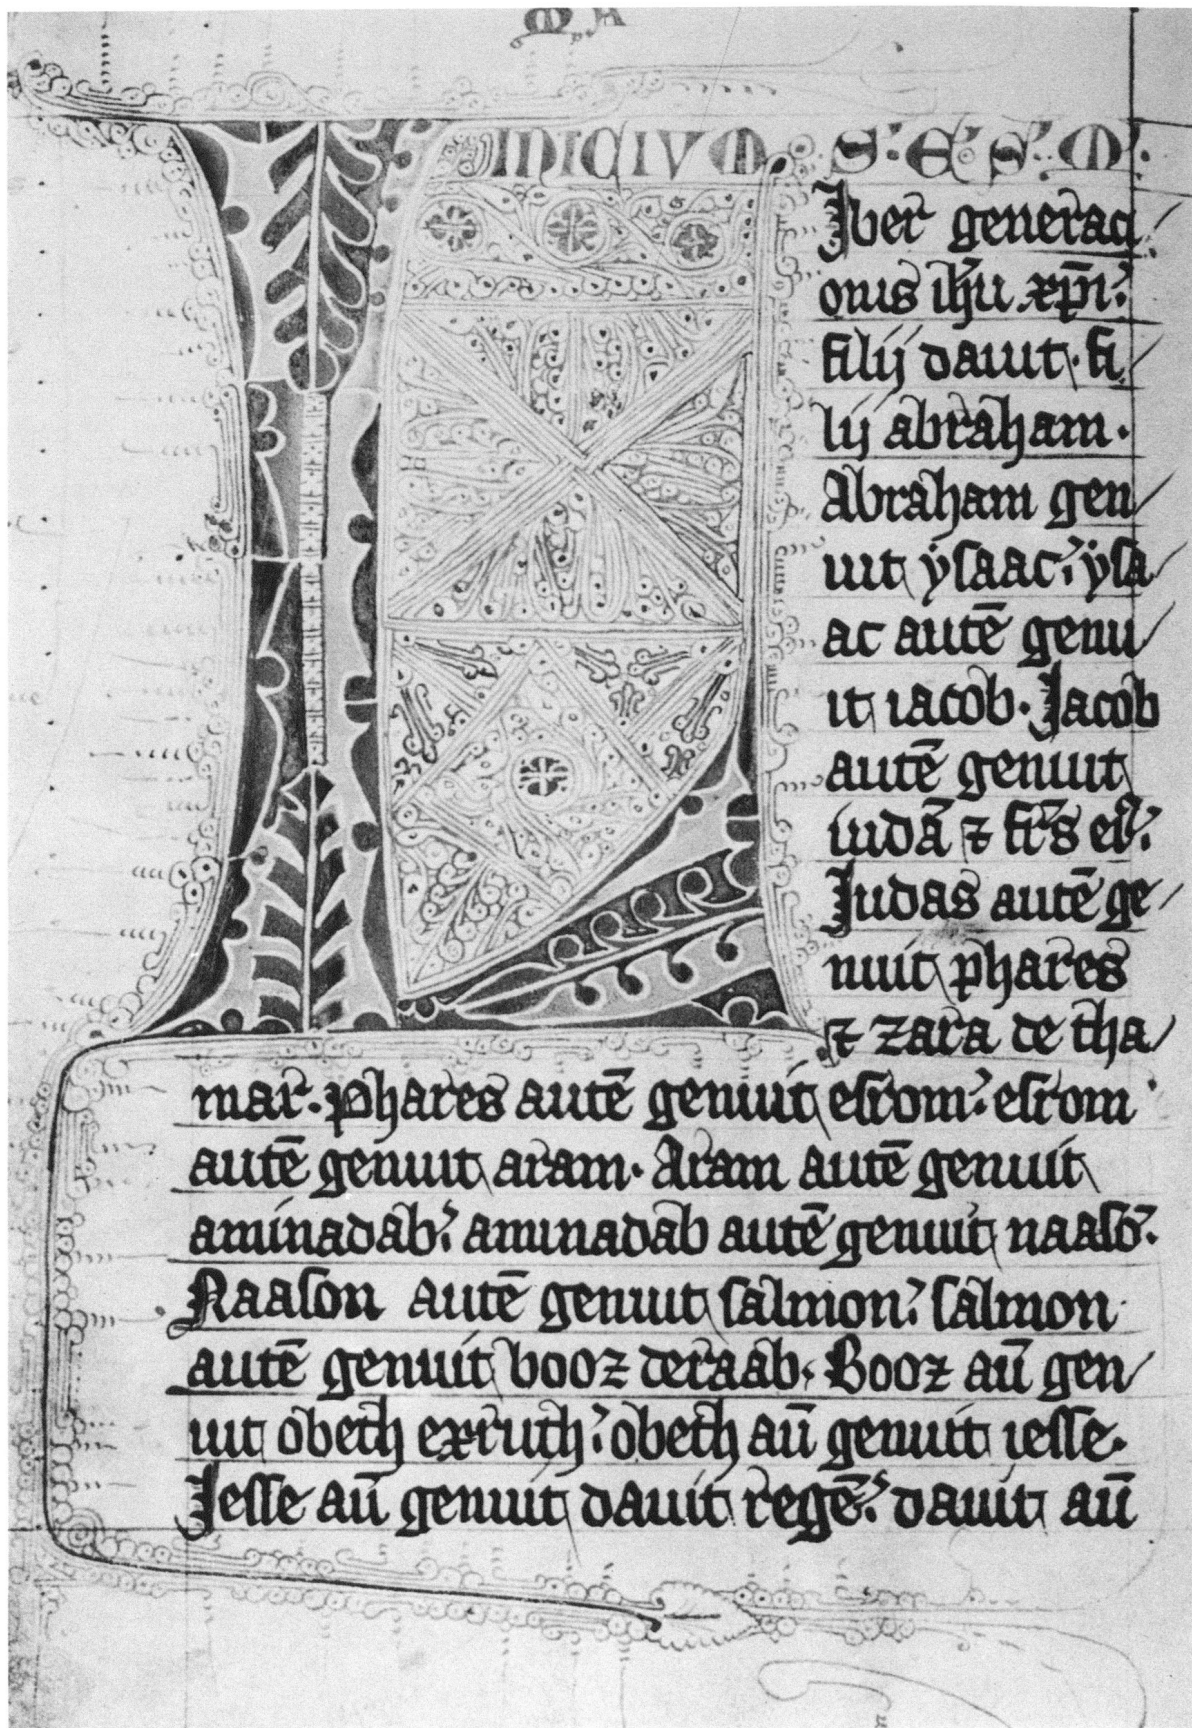 MA
INICIUM S. E. S. M.
Iber generaci
onis ihu xpi.
filij dauit. fi
lij abraham.
Abraham gen
uit ẏsaac. ẏsa
ac autē genu
it iacob. Jacob
autē genuit
iudā ⁊ frs ei.
Judas autē ge
nuit phares
⁊ zara de tha
mar. Phares autē genuit esrom. esrom
autē genuit aram. Aram autē genuit
aminadab. aminadab autē genuit naasō.
Naason autē genuit salmon. salmon
autē genuit booz deraab. Booz aū gen
uit obeth exruth. obeth aū genuit iesse.
Jesse aū genuit dauit regē. dauit aū